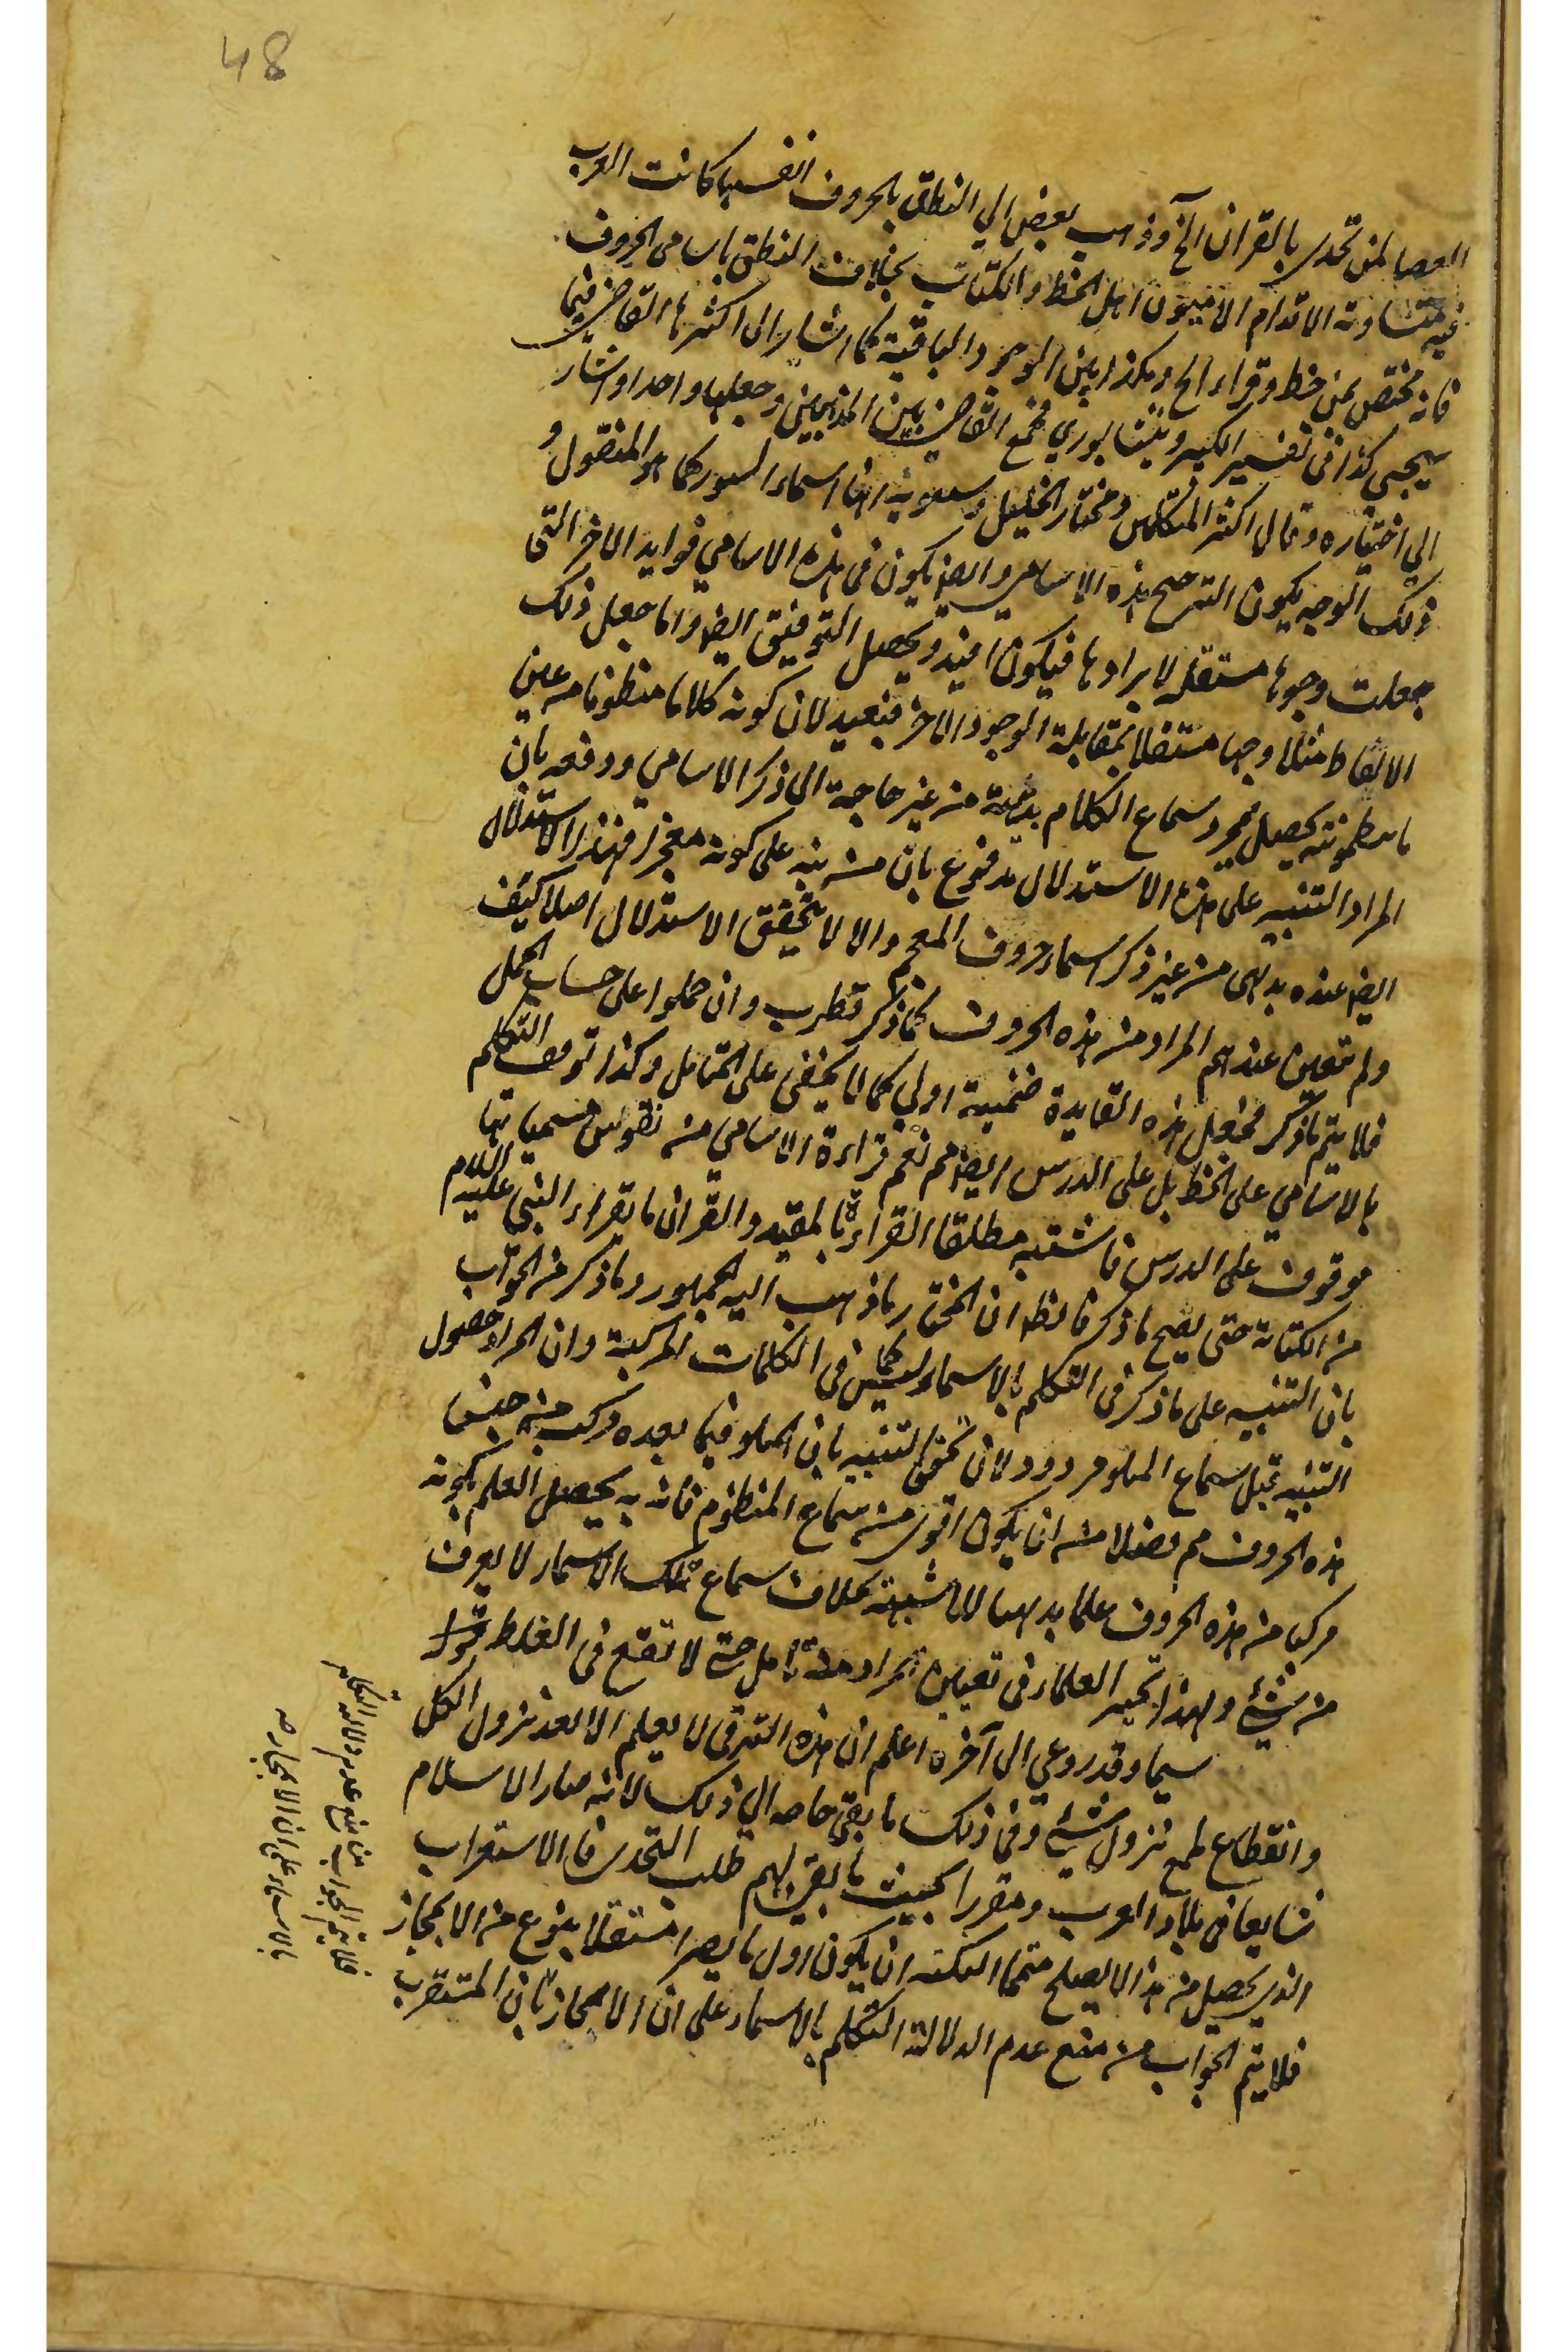 48
العصا لمن تحدى بالقران الخ وذهب بعض الى النطق بالحروف انفسها كانت العرب
فيه متساوية الاقدام الاميون اهل الخط والكتاب بخلاف النطق باسامي الحروف
فانه مختص بمن خط وقراء الخ وهكذا بين الوجوه الباقية كما اشار الى اكثرها القاضي فيما
سيجئ كذا في تفسير الكبير ونيشابوري فجمع القاضي بين المذهبين وجعلها واحدا واشار
الى اختياره وقال اكثر المتكلمين ومختار الخليل وسيبويه انها اسماء السور كما هو المنقول و
ذلك الوجه يكون الترجيح بهذه الاسامي وايضا يكون في هذه الاسامي فوايد الاخر التي
جعلت وجوها مستقلة لايرادها فيكون افيد ويحصل التوفيق ايضا واما جعل ذلك
الالقاظ مثلا وجها مستقلا بمقابلة الوجوه الاخر فبعيد لان كونه كلاما منظوما من عين
ما ينظمونه يحصل بمجرد سماع الكلام بديهة من غير حاجة الى ذكر الاسامي ودفعه بان
المراد التنبيه على هذا الاستدلال مدفوع بان من نبه على كونه معجزا فهذا الاستدلال
ايضا عنده بديهى من غير ذكر اسماء حروف المعجم والا لا يتحقق الاستدلال اصلا كيف
ولم تتعين عندهم المراد من هذه الحروف كما ذكر قطرب وان حملوا على حساب الجمل
فلا يتم ما ذكر فجعل هذه الفايدة ضمنية اولى كما لا يخفى على المتامل وكذا توقف التكلم
بالاسامي على الخط بل على الدرس ايضا مم نعم قراءة الاسامي من نقوش مسمياتها
موقوف على الدرس فاشتبه مطلقا القراءة بالمقيد والقران ما يقراء النبي عليه السلام
من الكتابة حتى يصح ما ذكر فالظ ان المختار ما ذهب اليه الجمهور وما ذكر من الجواب
بان التنبيه على ما ذكر في التكلم بالاسماء ليس كما في الكلمات المركبة وان المراد حصول
التنبيه قبل سماع المتلو مردود لان تحقق التنبيه بان المتلو فيما بعده مركب من جنس
هذه الحروف مم فضلا من ان يكون اقوى من سماع المنظوم فانه به يحصل العلم بكونه
مركبا من هذه الحروف علما بديهيا لا شبهة بخلاف سماع تلك الاسماء لا يعرف
من شئ ولهذا تحير العلماء في تعيين المراد منه تامل حتى لا تقع في الغلط قوله
سيما وقد روعي الى آخره اعلم ان هذه الترقى لا يعلم الا بعد نزول الكل
وانقطاع طمع نزول شئ وفي ذلك ما بقى حاجة الى ذلك لانه صار الاسلام
شايعا في بلاد العرب ومقررا بحيث ما بقى لهم طلب التحدى فالاستغراب
الذى يحصل من هذا لا يصلح متمما لنكته ان يكون اول ما يصر مستقلا بنوع من الاعجاز
فلا يتم الجواب من منع عدم الدلالة التكلم بالاسماء على ان الاعجاز بان المستغرب
فلا يتم الجواب من منع عدم دلالة التكلم
بالاسماء على ان الاعجاز